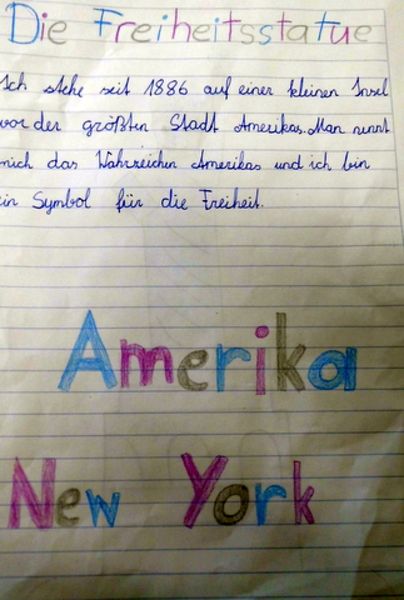 Die Freiheitsstatue
Ich stehe seit 1886 auf einer kleinen Insel
vor der größten Stadt Amerikas. Man nennt
mich das Wahrzeichen Amerikas und ich bin
ein Symbol für die Freiheit.
Amerika
New York